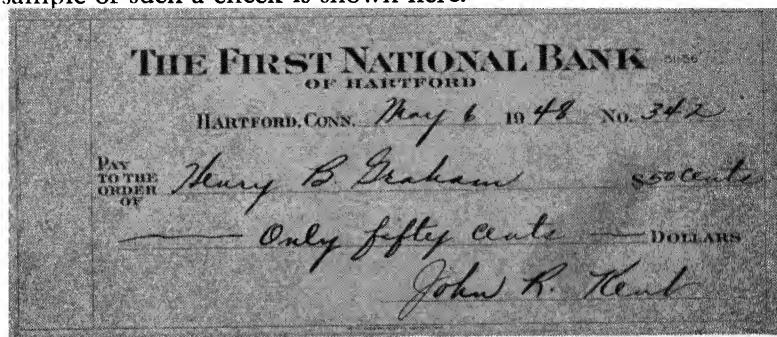 sample of such a check is shown here.
THE FIRST NATIONAL BANK 51-56
OF HARTFORD
HARTFORD, CONN. May 6 1948 No. 342
PAY
TO THE
ORDER
OF
Henry B. Graham $50 cents
Only fifty cents DOLLARS
John R. Kent